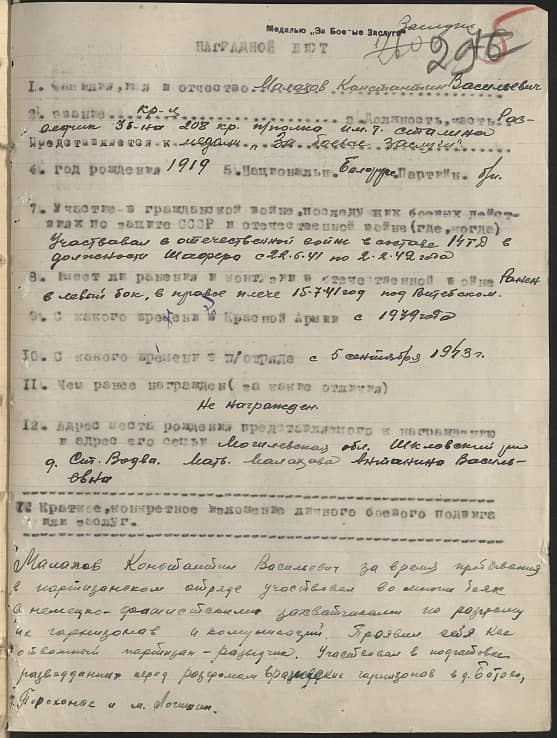 Медалью „За Боевые Заслуги"
Заслуги
296
5
НАГРАДНОЙ ЛИСТ
1. Фамилия, имя и отчество Малахов Константин Васильевич
2. Звание кр-ц 3. Должность, часть Раз-
ведчик 36-на 208 кр. п/полка им. т. Сталина
Представляется к медали „За боевые заслуги"
4. Год рождения 1919 5. Национальн. Белорус. Партийн. б/п.
7. Участие в гражданской войне, последующих боевых дейст-
виях по защите СССР и отечественной войне (где, когда)
Участвовал в отечественной войне в составе 14ТД в
должности Шофера с 22.6.41 по 2.2.42 года
8. Имеет ли ранения и контузии в отечественной войне Ранен
в левый бок, в правое плечо 15.7.41 год под Витебском.
9. С какого времени в Красной Армии с 1939 года
10. С какого времени в п/отряде с 5 сентября 1943 г.
11. Чем ранее награжден (за какие отличия)
Не награжден.
12. Адрес места рождения представляемого к награждению
и адрес его семьи Могилевская обл. Шкловский
д. Ст. Водва. Мать. Малахова Антанина Василь-
евна
Краткое, конкретное изложение личного боевого подвига
или заслуг.
Малахов Константин Васильевич за время пребывания
в партизанском отряде участвовал во многих боях
с немецко-фашистскими захватчиками по разгрому
их гарнизонов и коммуникаций. Проявил себя как
отважный партизан-разведчик. Участвовал в подготовке
разведданных перед разгромом вражеских гарнизонов в д.
и м.